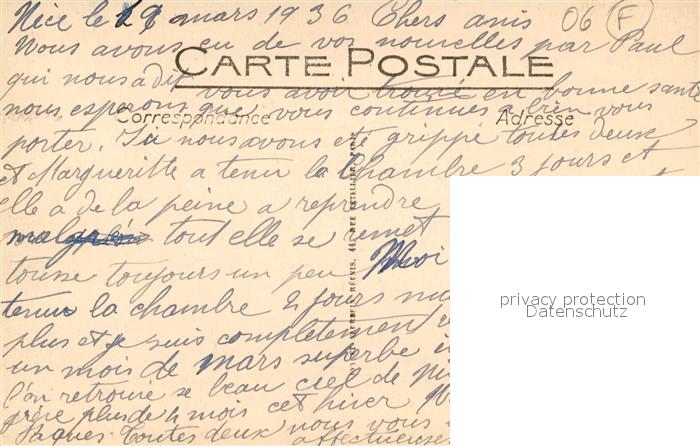 Nice le 19 mars 1936 Chers amis
06 F
Nous avons eu de vos nouvelles par Paul
CARTE POSTALE
qui nous a dit vous avoir trouvé en bonne santé
nous esperons que vous continues a bien vous
Correspondance
Adresse
porter. Ici nous avons eté grippé toutes deux
et Margueritte a tenu la Chambre 3 jours et
elle a de la peine a reprendre
malgré tout elle se remet
tousse toujours un peu Moi
tenu la chambre 2 jours
plus et je suis completement
un mois de mars superbe
l'on retrouve se beau ciel de
plus de 4 mois cet hiver
Paques Toutes deux nous vous
affectueuse
RÉUNIS,
RUE
privacy protection
Datenschutz